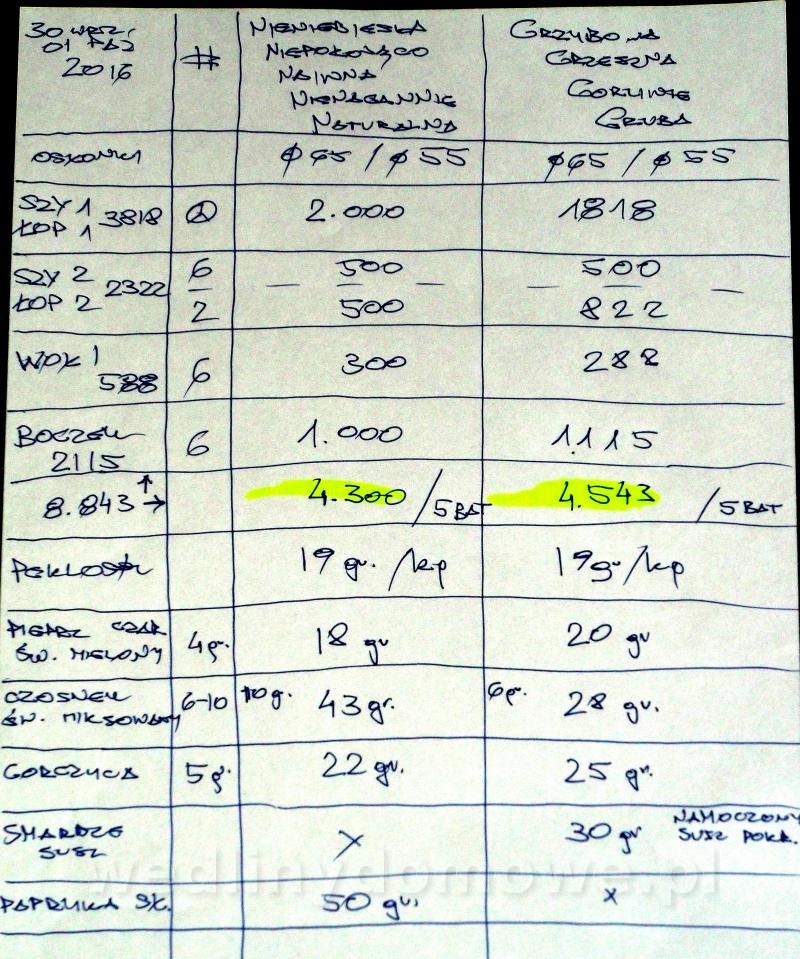 30 WRZ,
01 PAŹ
2016
#
NIENIEBIESKA
NIEPOKOJĄCO
NAIWNA
NIENAGANNIE
NATURALNA
GRZYBOWA
GRZESZNA
GORLIWIE
GRUBA
OSŁONKI
ϕ65 / ϕ55
ϕ65 / ϕ55
SZY 1 3818
ŁOP 1
2.000
1818
SZY 2 2322
ŁOP 2
6
2
500
500
500
822
WOŁ 1
588
6
300
288
BOCZEK
2115
6
1.000
1.115
8.843
4.300 / 5 BAT
4.543 / 5 BAT
PEKLOSÓL
19 gr. /kp
19 gr /kp
PIEPRZ CZAR
ŚW. MIELONY
4g.
18 gr
20 gr
CZOSNEK
ŚW. MIKSOWANY
6-10
10g. 43 gr.
6g. 28 gr.
GORCZYCA
5g.
22 gr.
25 gr.
SMARDZE
SUSZ
X
30 gr
NAMOCZONY
SUSZ POKR.
PAPRYKA SŁ.
50 gr.
X
wedlinydomowe.pl